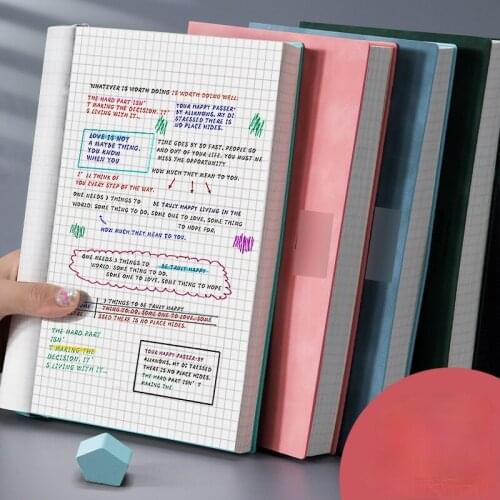 WHATEVER IS WORTH DOING IS WORTH DOING WELL.
THE HARD PART ISN'
T MAKING THE DECISION. IT'
S LIVING WITH IT..
YOUR HAPPY PASSER-
BY ALLKNOWS, MY DI
STRESSED THERE IS
NO PLACE HIDES.
LOVE IS NOT
A MAYBE THING.
YOU KNOW
WHEN YOU
TIME GOES BY SO FAST, PEOPLE GO
AND OUT OF YOUR LIFE. YOU MUST NE
MISS THE OPPORTUNITY
HOW MUCH THEY MEAN TO YOU.
I' LL THINK OF
YOU EVERY STEP OF THE WAY.
ONE NEEDS 3 THINGS TO BE TRULY HAPPY LIVING IN THE
WORLD: SOME THING TO DO, SOME ONE TO LOVE, SOME THING
TO HOPE FOR.
HOW MUCH THEY MEAN TO YOU.
ONE NEEDS 3 THINGS TO BE TRULY HAPPY
WORLD: SOME THING TO DO.
SOME ONE TO LOVE, SOME THING TO HOPE
3 THINGS TO BE TRULY HAPPY
THING TO DO, SOME ONE TO LOVE, SOME
SSED THERE IS NO PLACE HIDES.
THE HARD PART
ISN'
T MAKING THE
DECISION. IT'
S LIVING WITH IT..
YOUR HAPPY PASSER-BY
ALLKNOWS, MY DI STRESSED
THERE IS NO PLACE HIDES.
THE HARD PART ISN' T
MAKING THE